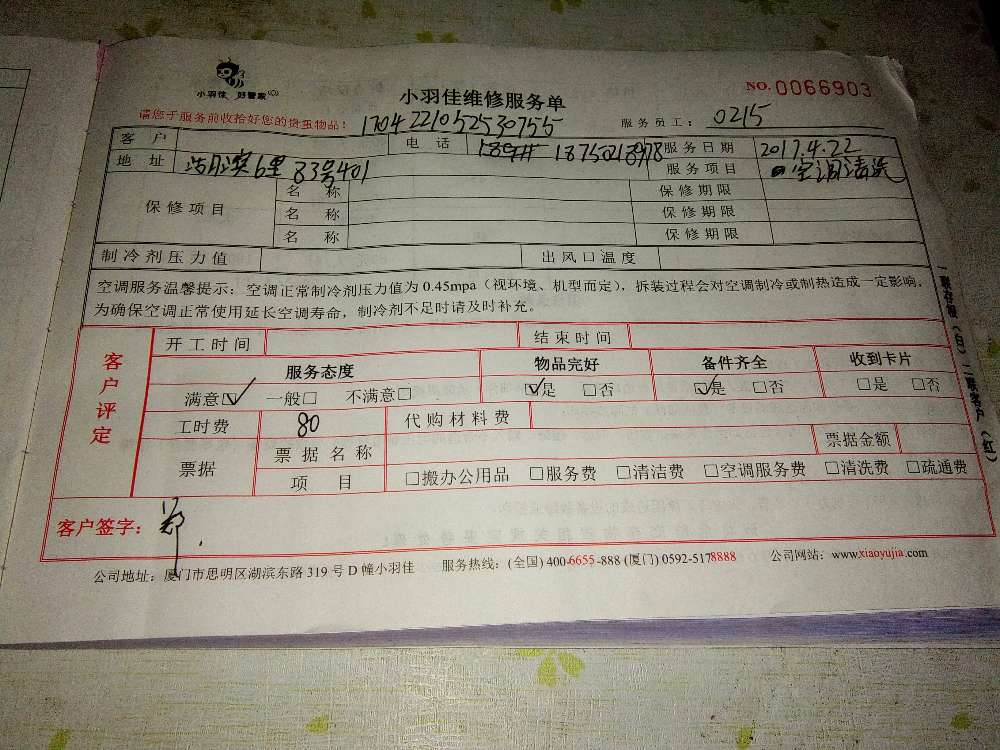 小羽佳 好管家
小羽佳维修服务单
NO. 0066903
请您于服务前收拾好您的贵重物品！
1704221052530755
服务员工： 0215
客户 电话 18750218978 服务日期 2017.4.22
地址 6里 83号401 服务项目 空调清洗
保修项目
名称 保修期限
名称 保修期限
名称 保修期限
制冷剂压力值 出风口温度
空调服务温馨提示：空调正常制冷剂压力值为 0.45mpa（视环境、机型而定），拆装过程会对空调制冷或制热造成一定影响，
为确保空调正常使用延长空调寿命，制冷剂不足时请及时补充。
客户评定
开工时间 结束时间
服务态度 物品完好 备件齐全 收到卡片
满意☑ 一般□ 不满意□ ☑是 □否 ☑是 □否 □是 □否
工时费 80 代购材料费
票据 票据名称 票据金额
项目 □搬办公用品 □服务费 □清洁费 □空调服务费 □清洗费 □疏通费
客户签字： 郑
公司地址：厦门市思明区湖滨东路 319 号 D 幢小羽佳 服务热线：(全国) 400-6655-888 (厦门) 0592-5178888 公司网站：www.xiaoyujia.com
一联存根（白）二联客户（红）